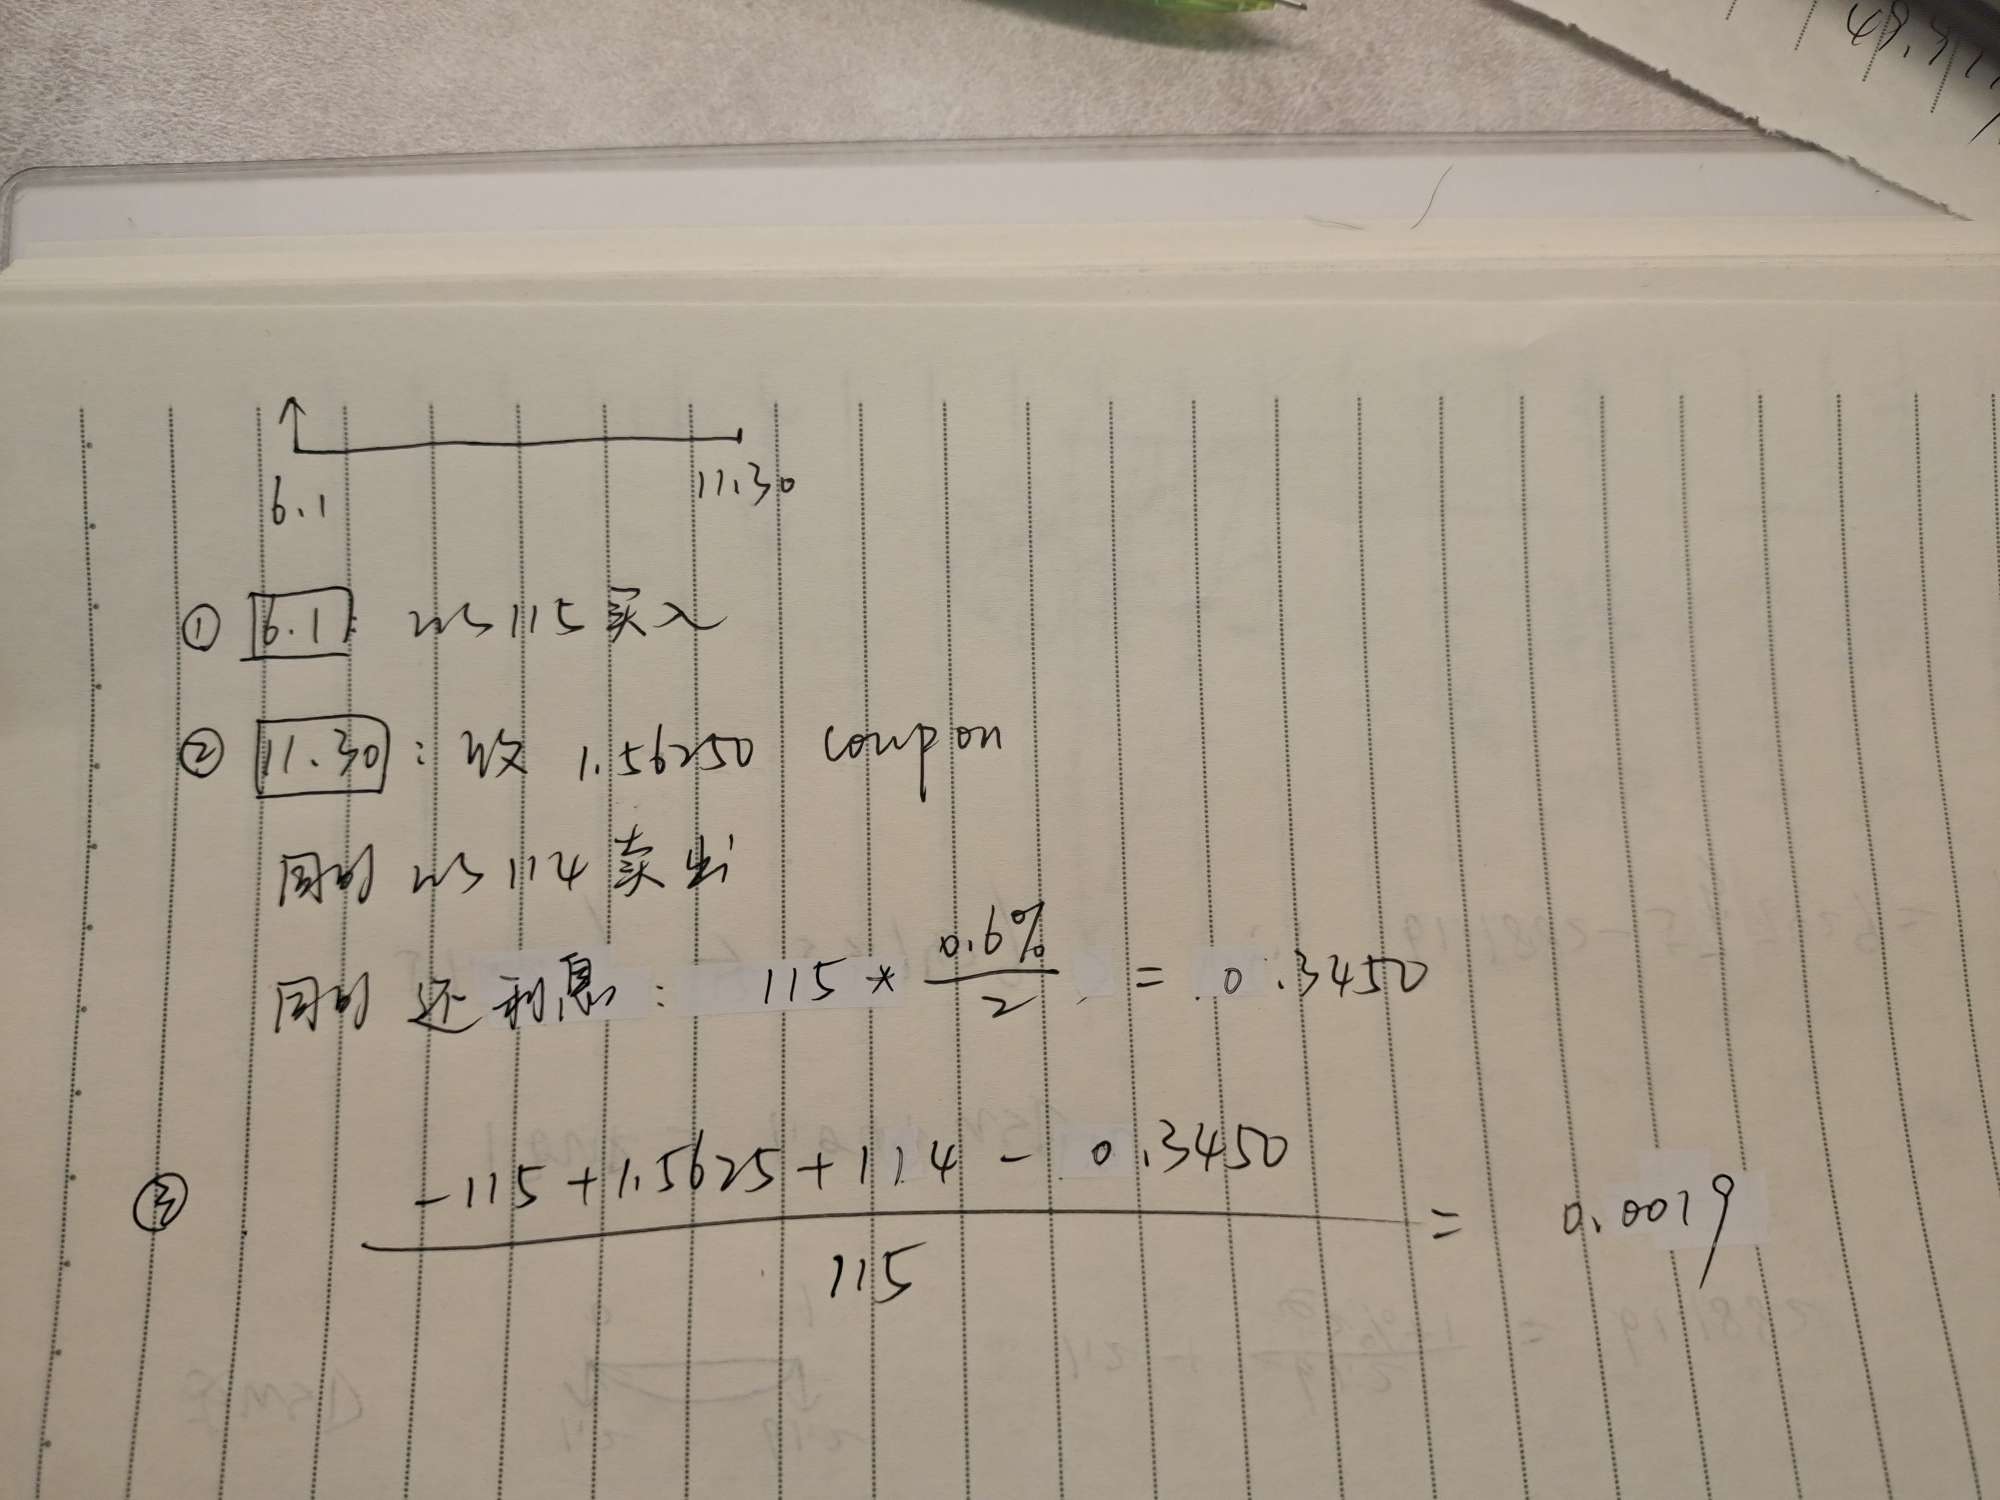 6.1 11.30
① 6.1: 以115买入
② 11.30: 收 1.56250 coupon
同时 以114卖出
同时 还利息: 115 * 0.6%/2 = 0.3450
③ (-115 + 1.5625 + 114 - 0.3450)/115 = 0.0019